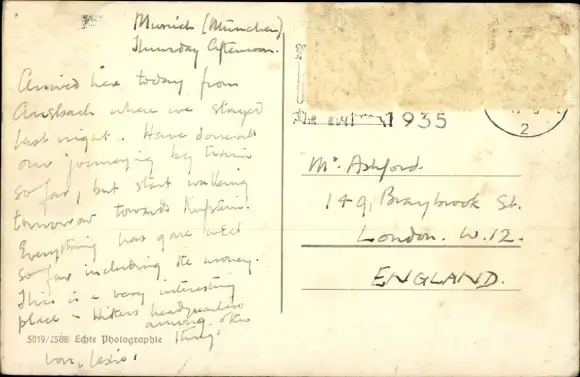 Munich (München)
Thursday Afternoon.
Arrived here today from
Ansbach where we stayed
last night. Have done all
our journeying by train
so far, but start walking
tomorrow towards Kufstein.
Everything has gone well
so far including the money.
This is a very interesting
place - Hitlers headquarters
among other
things.
5019/2588 Echte Photographie
Love,
1935
2
Mr Ashford.
149, Braybrook St.
London. W.12.
ENGLAND.